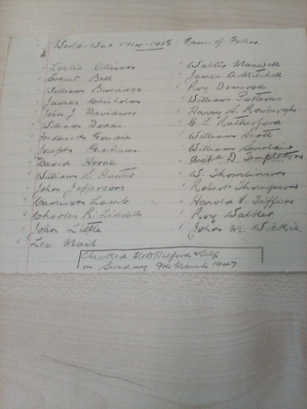 World War 1914-1918: Name of Fallen
Leslie Allison
Ernest Bell
William Burridge
James Chisholm
John J. Davidson
William Dodds
Frederick
Joseph Graham
David Hoone
William L. Hunter
John Jefferson
Cameron Lamb
Charles R. Liddell
John Little
Leo Mail
Walter Maxwell
James A. Mitchell
Roy Ormond
William Patterson
Harry S. Roxburgh
Rutherford
William Scott
William Sinclair
Archd D. Templeton
W. Thomlinson
Robert Thompson
Harold V. Tiffin
Roy Walker
John M. Wilkie
Checked Halford & Self
on Sunday 9th March 1947